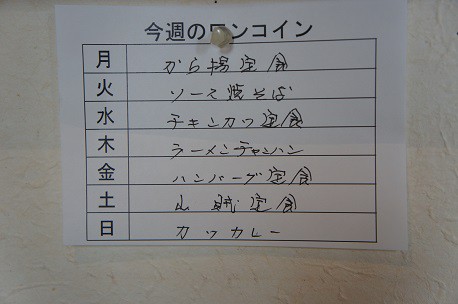 今週のワンコイン
月 から揚定食
火 ソース焼そば
水 チキンカツ定食
木 ラーメンチャーハン
金 ハンバーグ定食
土 山賊定食
日 カツカレー